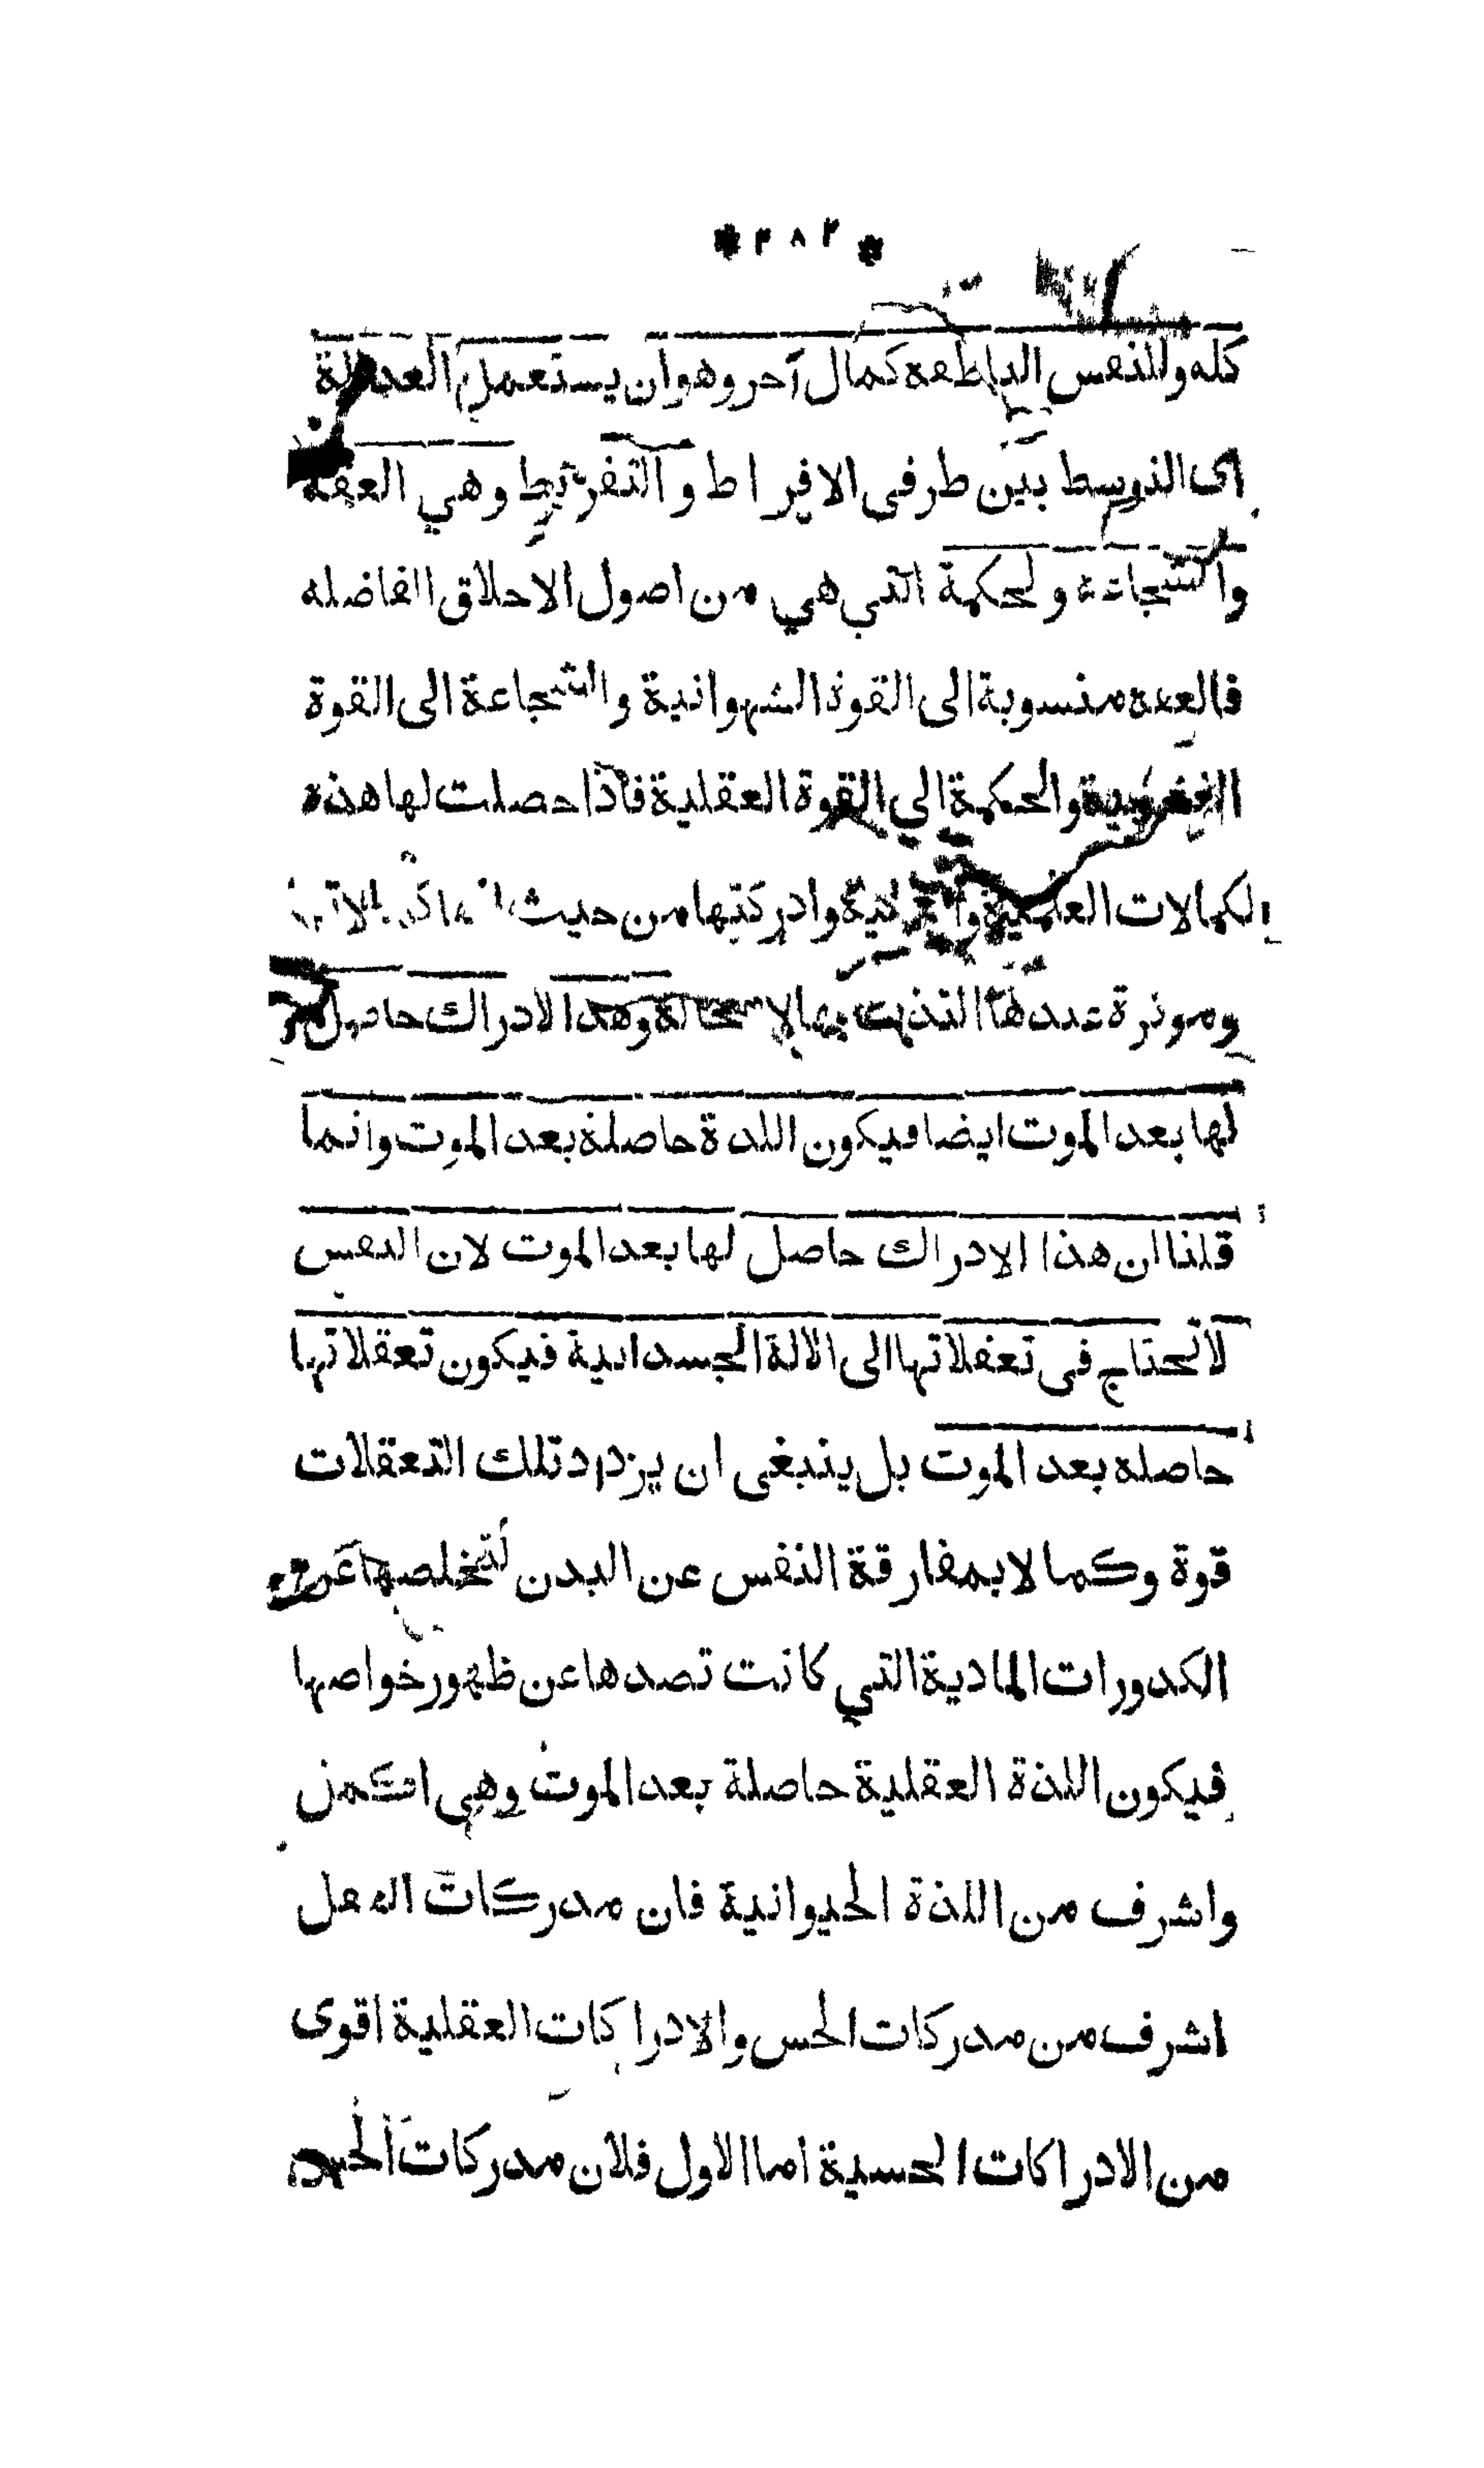 * ٣٨٢ *
كله وللنفس الناطقة كمال آخر وهو ان يستعمل العدالة
اى التوسط بين طرفى الافراط والتفريط وهي العفة
والشجاعة ولحكمة التي هي من اصول الاخلاق الفاضله
فالعفة منسوبة الى القوة الشهوانية والشجاعة الى القوة
الغضبية والحكمة الي القوة العقلية فاذا حصلت لها هذه
لكمالات العلمية وادركتها من حيث كمالات
وموثرة عندها التذت بها لا محالة وهذا الادراك حاصل
لها بعد الموت ايضا فيكون اللذة حاصلة بعد الموت وانما
قلنا ان هذا الادراك حاصل لها بعد الموت لان النفس
لا تحتاج فى تعقلاتها الى الالة الجسدانية فيكون تعقلاتها
حاصله بعد الموت بل ينبغى ان يزداد تلك التعقلات
قوة وكمالا بمفارقة النفس عن البدن لتخلصها عن
الكدورات المادية التي كانت تصدها عن ظهور خواصها
فيكون اللذة العقلية حاصلة بعد الموت وهى اكمل
واشرف من اللذة الحيوانية فان مدركات العقل
اشرف من مدركات الحس والادراكات العقلية اقوى
من الادراكات الحسية اما الاول فلان مدركات الحس